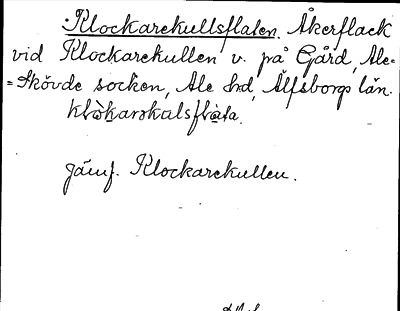 Klockarekullsflaten. Åkerflack
vid Klockarekullen v. på Gård, Ale-
-Skövde socken, Ale hd, Älfsborgs län.
klòkarəkalsflata.
jämf. Klockarekullen.